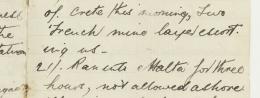 of Crete this morning, Two
French mine layers escort-
ing us -
21. Ran into Malta for three
hours, not allowed ashore